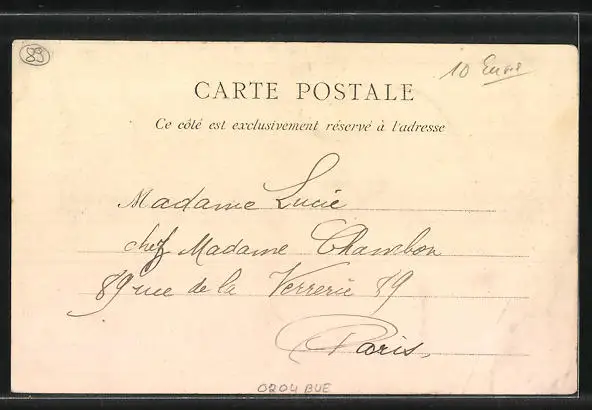 89
10 Euros
CARTE POSTALE
Ce côté est exclusivement réservé à l'adresse
Madame Lucie
chez Madame Chambon
89 rue de la Verrerie 89
Paris
0204 BUE